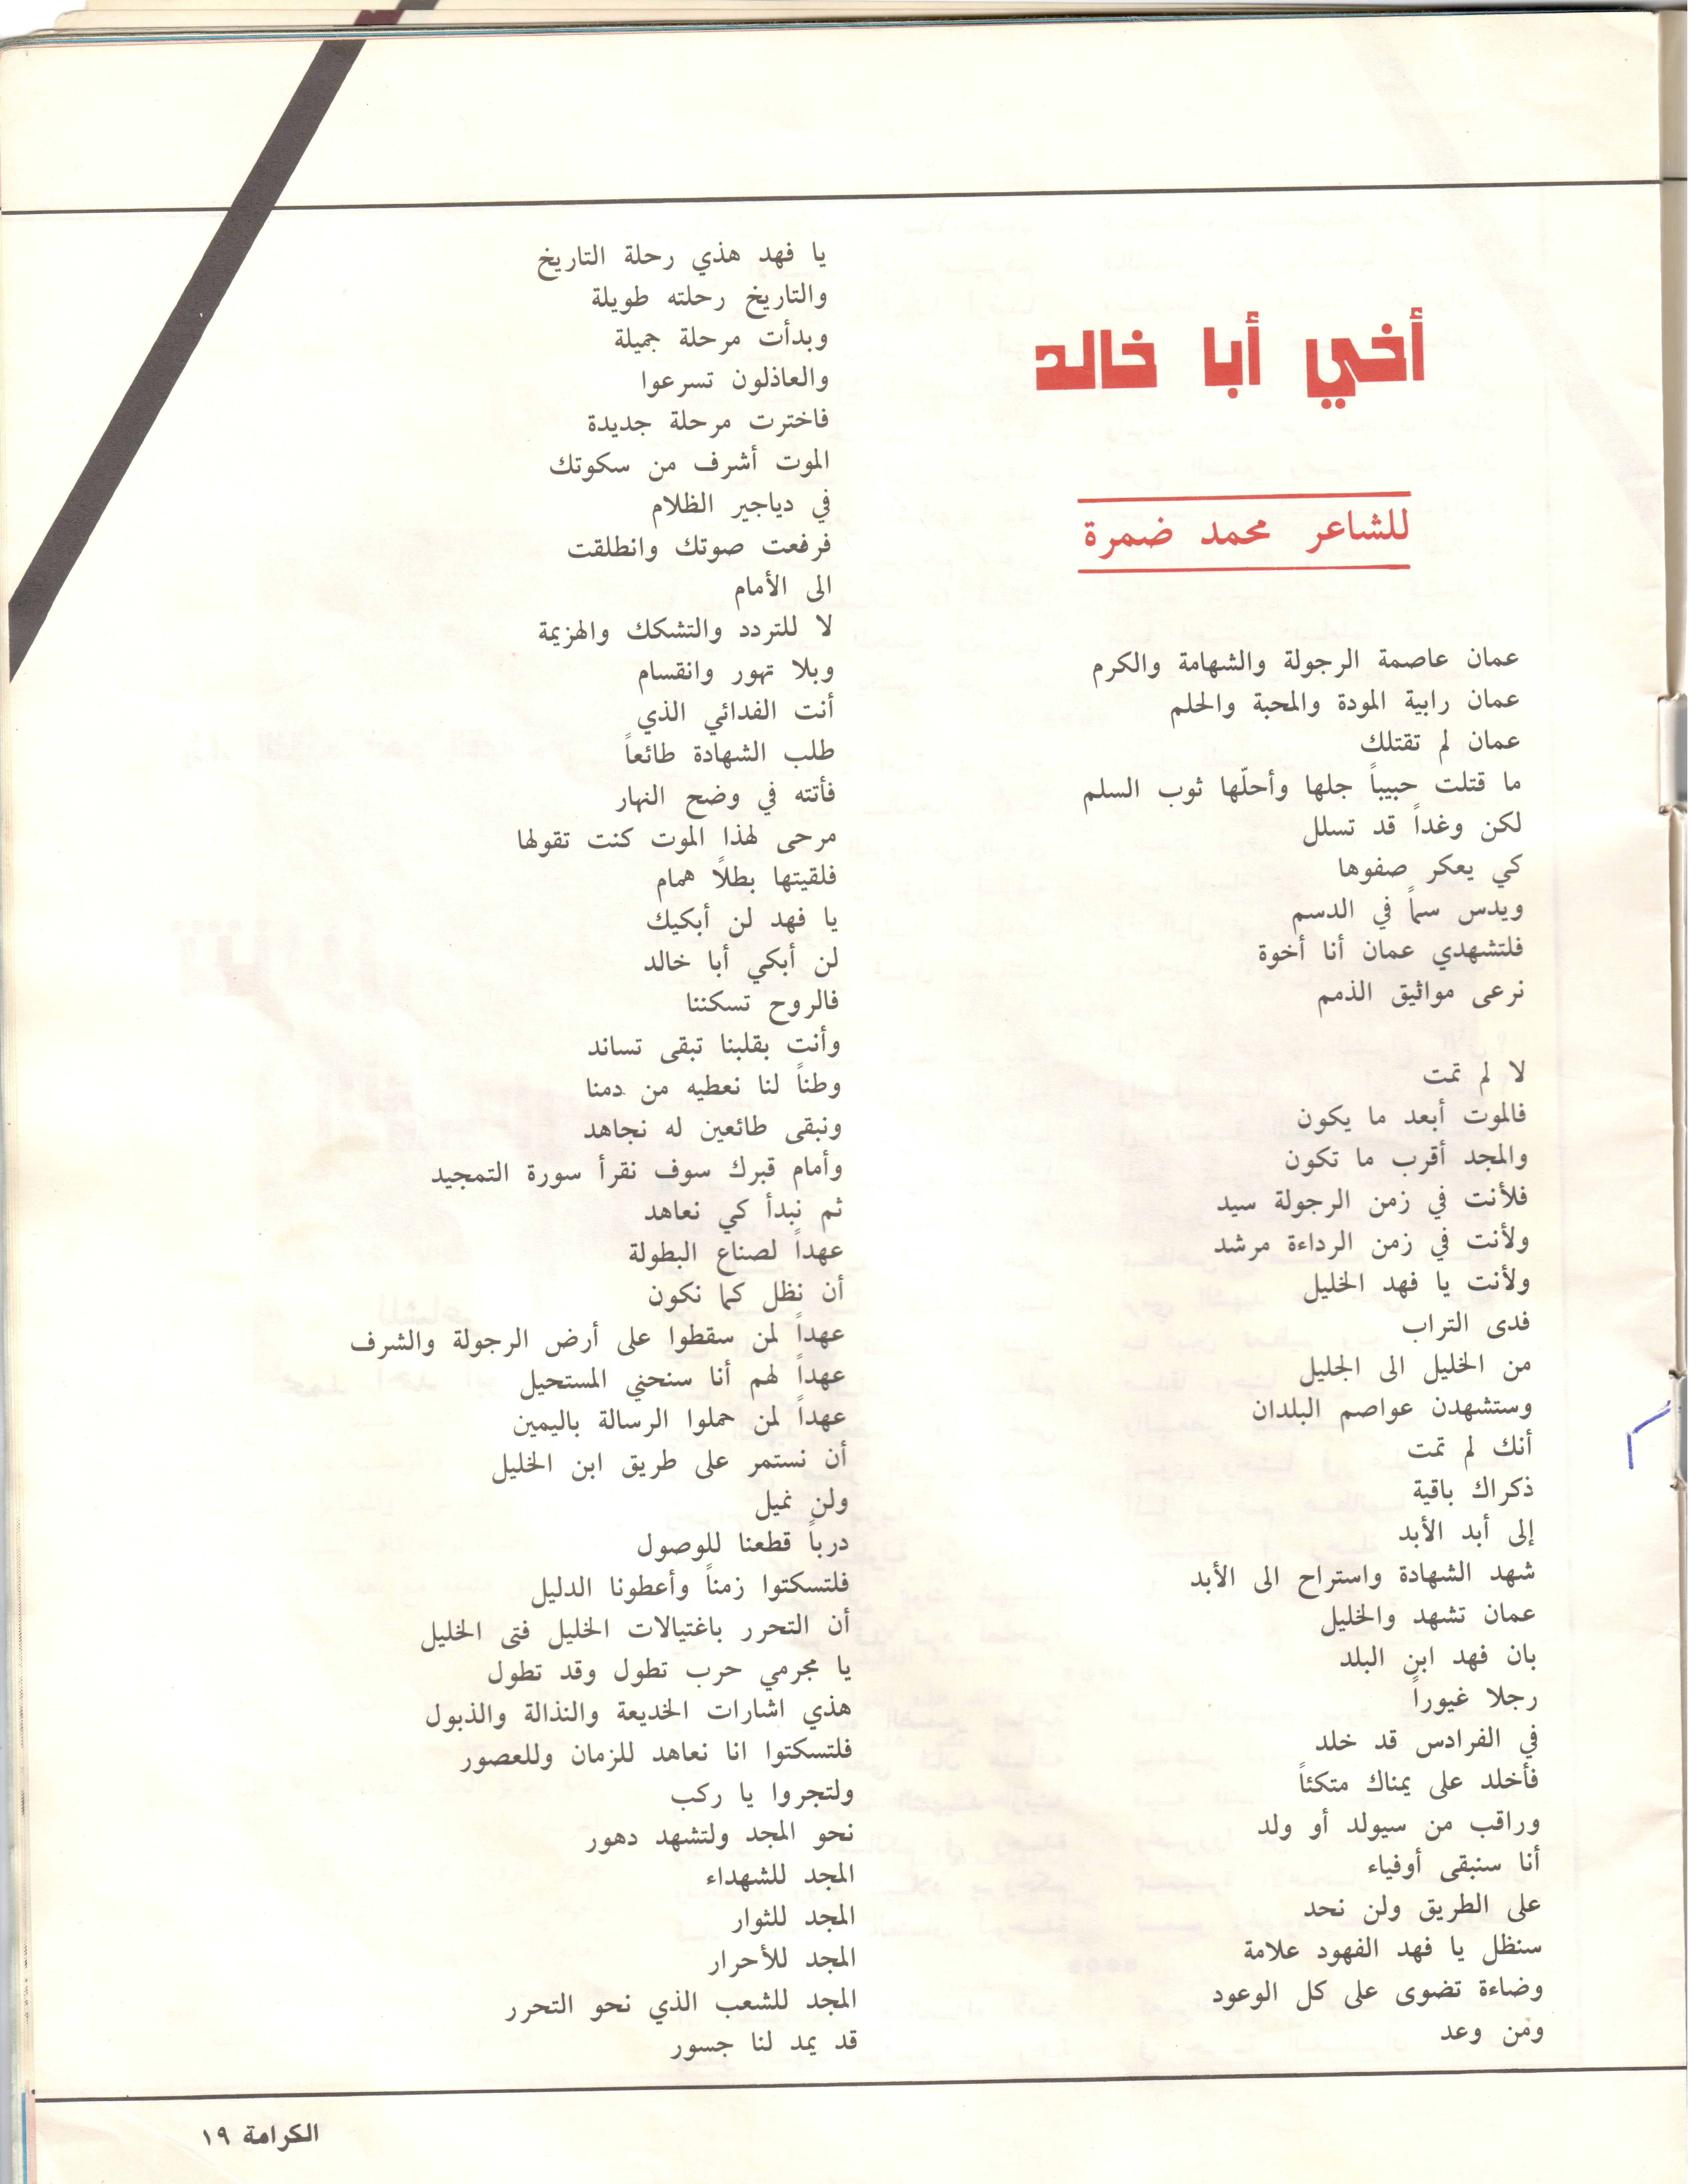 أخي أبا خالد
للشاعر محمد ضمرة
عمان عاصمة الرجولة والشهامة والكرم
عمان رابية المودة والمحبة والحلم
عمان لم تقتلك
ما قتلت حبيباً جلها وأحلّها ثوب السلم
لكن وغداً قد تسلل
كي يعكر صفوها
ويدس سماً في الدسم
فلتشهدي عمان أنا أخوة
نرعى مواثيق الذمم
لا لم تمت
فالموت أبعد ما يكون
والمجد أقرب ما تكون
فلأنت في زمن الرجولة سيد
ولأنت في زمن الرداءة مرشد
ولأنت يا فهد الخليل
فدى التراب
من الخليل الى الجليل
وستشهدن عواصم البلدان
أنك لم تمت
ذكراك باقية
إلى أبد الأبد
شهد الشهادة واستراح الى الأبد
عمان تشهد والخليل
بان فهد ابن البلد
رجلا غيوراً
في الفرادس قد خلد
فأخلد على يمناك متكئاً
وراقب من سيولد أو ولد
أنا سنبقى أوفياء
على الطريق ولن نحد
سنظل يا فهد الفهود علامة
وضاءة تضوى على كل الوعود
ومن وعد
يا فهد هذي رحلة التاريخ
والتاريخ رحلته طويلة
وبدأت مرحلة جميلة
والعاذلون تسرعوا
فاخترت مرحلة جديدة
الموت أشرف من سكوتك
في دياجير الظلام
فرفعت صوتك وانطلقت
الى الأمام
لا للتردد والتشكك والهزيمة
وبلا تهور وانقسام
أنت الفدائي الذي
طلب الشهادة طائعاً
فأتته في وضح النهار
مرحى لهذا الموت كنت تقولها
فلقيتها بطلاً همام
يا فهد لن أبكيك
لن أبكي أبا خالد
فالروح تسكننا
وأنت بقلبنا تبقى تساند
وطناً لنا نعطيه من دمنا
ونبقى طائعين له نجاهد
وأمام قبرك سوف نقرأ سورة التمجيد
ثم نبدأ كي نعاهد
عهداً لصناع البطولة
أن نظل كما نكون
عهداً لمن سقطوا على أرض الرجولة والشرف
عهداً لهم أنا سنحني المستحيل
عهداً لمن حملوا الرسالة باليمين
أن نستمر على طريق ابن الخليل
ولن نميل
درباً قطعنا للوصول
فلتسكتوا زمناً وأعطونا الدليل
أن التحرر باغتيالات الخليل فتى الخليل
يا مجرمي حرب تطول وقد تطول
هذي اشارات الخديعة والنذالة والذبول
فلتسكتوا انا نعاهد للزمان وللعصور
ولتجروا يا ركب
نحو المجد ولتشهد دهور
المجد للشهداء
المجد للثوار
المجد للأحرار
المجد للشعب الذي نحو التحرر
قد يمد لنا جسور
الكرامة ١٩